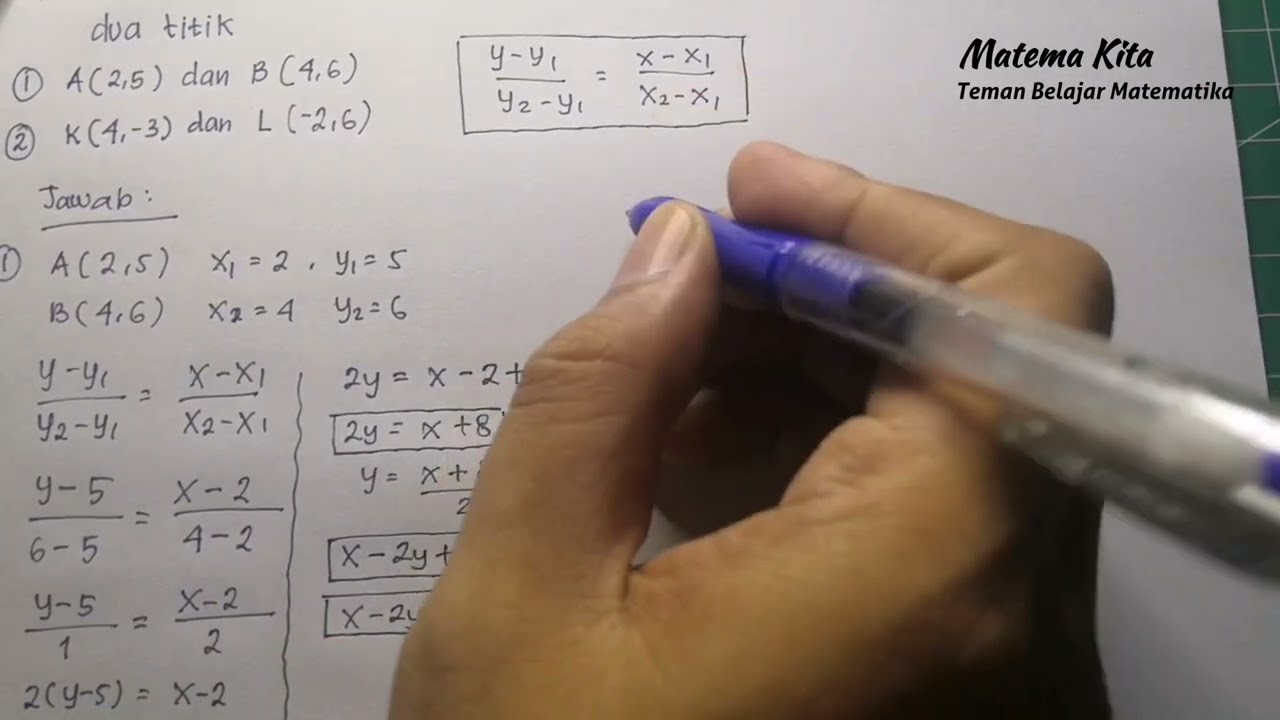 dua titik
① A(2,5) dan B(4,6)
② K(4,-3) dan L(-2,6)
(y-y₁)/(y₂-y₁) = (x-x₁)/(x₂-x₁)
Matema Kita
Teman Belajar Matematika
Jawab :
① A(2,5) x₁ = 2 , y₁ = 5
B(4,6) x₂ = 4 y₂ = 6
(y-y₁)/(y₂-y₁) = (x-x₁)/(x₂-x₁)
(y-5)/(6-5) = (x-2)/(4-2)
(y-5)/1 = (x-2)/2
2(y-5) = x-2
2y = x-2+
2y = x+8
y = x+
x-2y+
x-2y